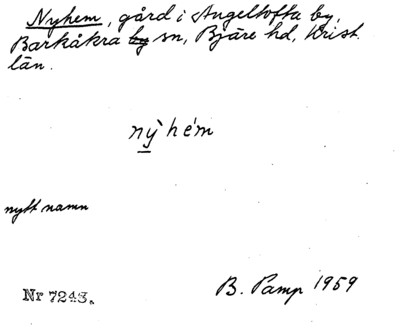 Nyhem, gård i Angeltofta by,
Barkåkra by sn, Bjäre hd, Krist.
län.
nỳhém
nytt namn
Nr 7243.
B. Pamp 1959